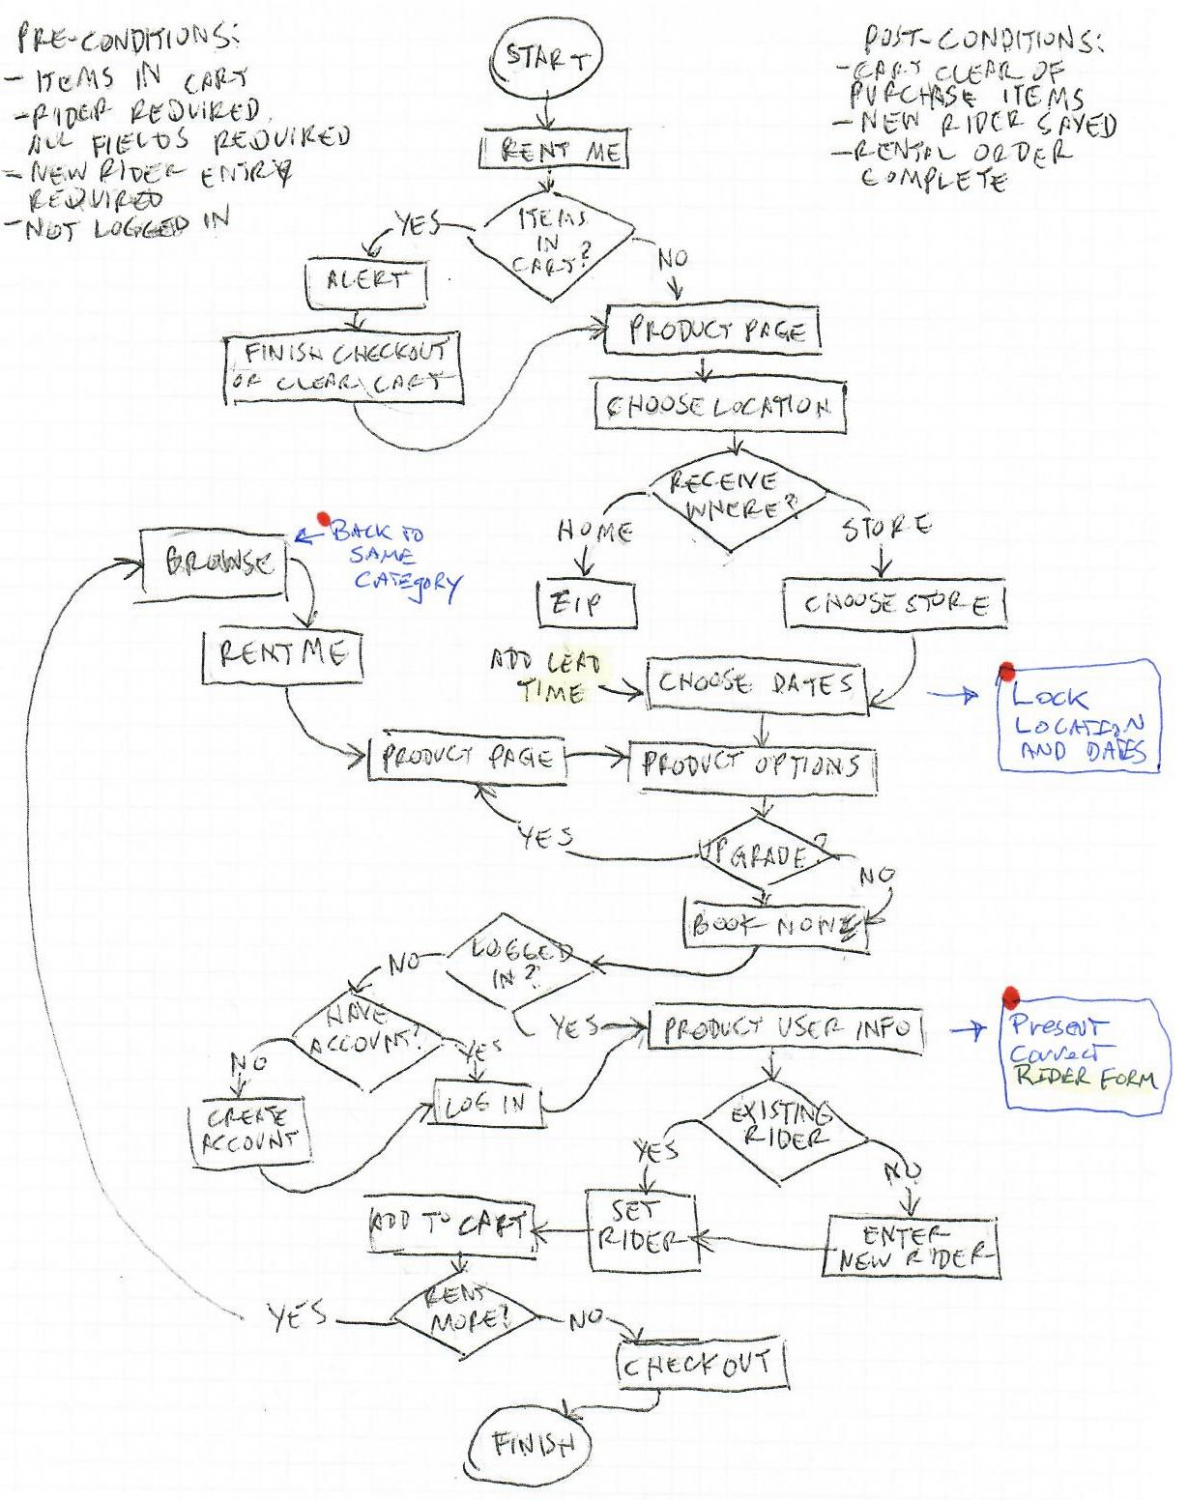 PRE-CONDITIONS:
- ITEMS IN CART
- RIDER REQUIRED.
ALL FIELDS REQUIRED
- NEW RIDER ENTRY
REQUIRED
- NOT LOGGED IN
START
POST-CONDITIONS:
- CART CLEAR OF
PURCHASE ITEMS
- NEW RIDER SAVED
- RENTAL ORDER
COMPLETE
RENT ME
ITEMS
IN
CART?
YES
NO
ALERT
FINISH CHECKOUT
OR CLEAR CART
PRODUCT PAGE
CHOOSE LOCATION
RECEIVE
WHERE?
HOME
STORE
EIP
CHOOSE STORE
BROWSE
BACK TO
SAME
CATEGORY
RENT ME
ADD LEAD
TIME
CHOOSE DATES
LOCK
LOCATION
AND DATES
PRODUCT PAGE
PRODUCT OPTIONS
YES
UPGRADE?
NO
BOOK NOW
LOGGED
IN?
NO
YES
HAVE
ACCOUNT?
NO
YES
CREATE
ACCOUNT
LOG IN
PRODUCT USER INFO
Present
Correct
RIDER FORM
EXISTING
RIDER
YES
NO
ADD TO CART
SET
RIDER
ENTER
NEW RIDER
RENT
MORE?
YES
NO
CHECKOUT
FINISH